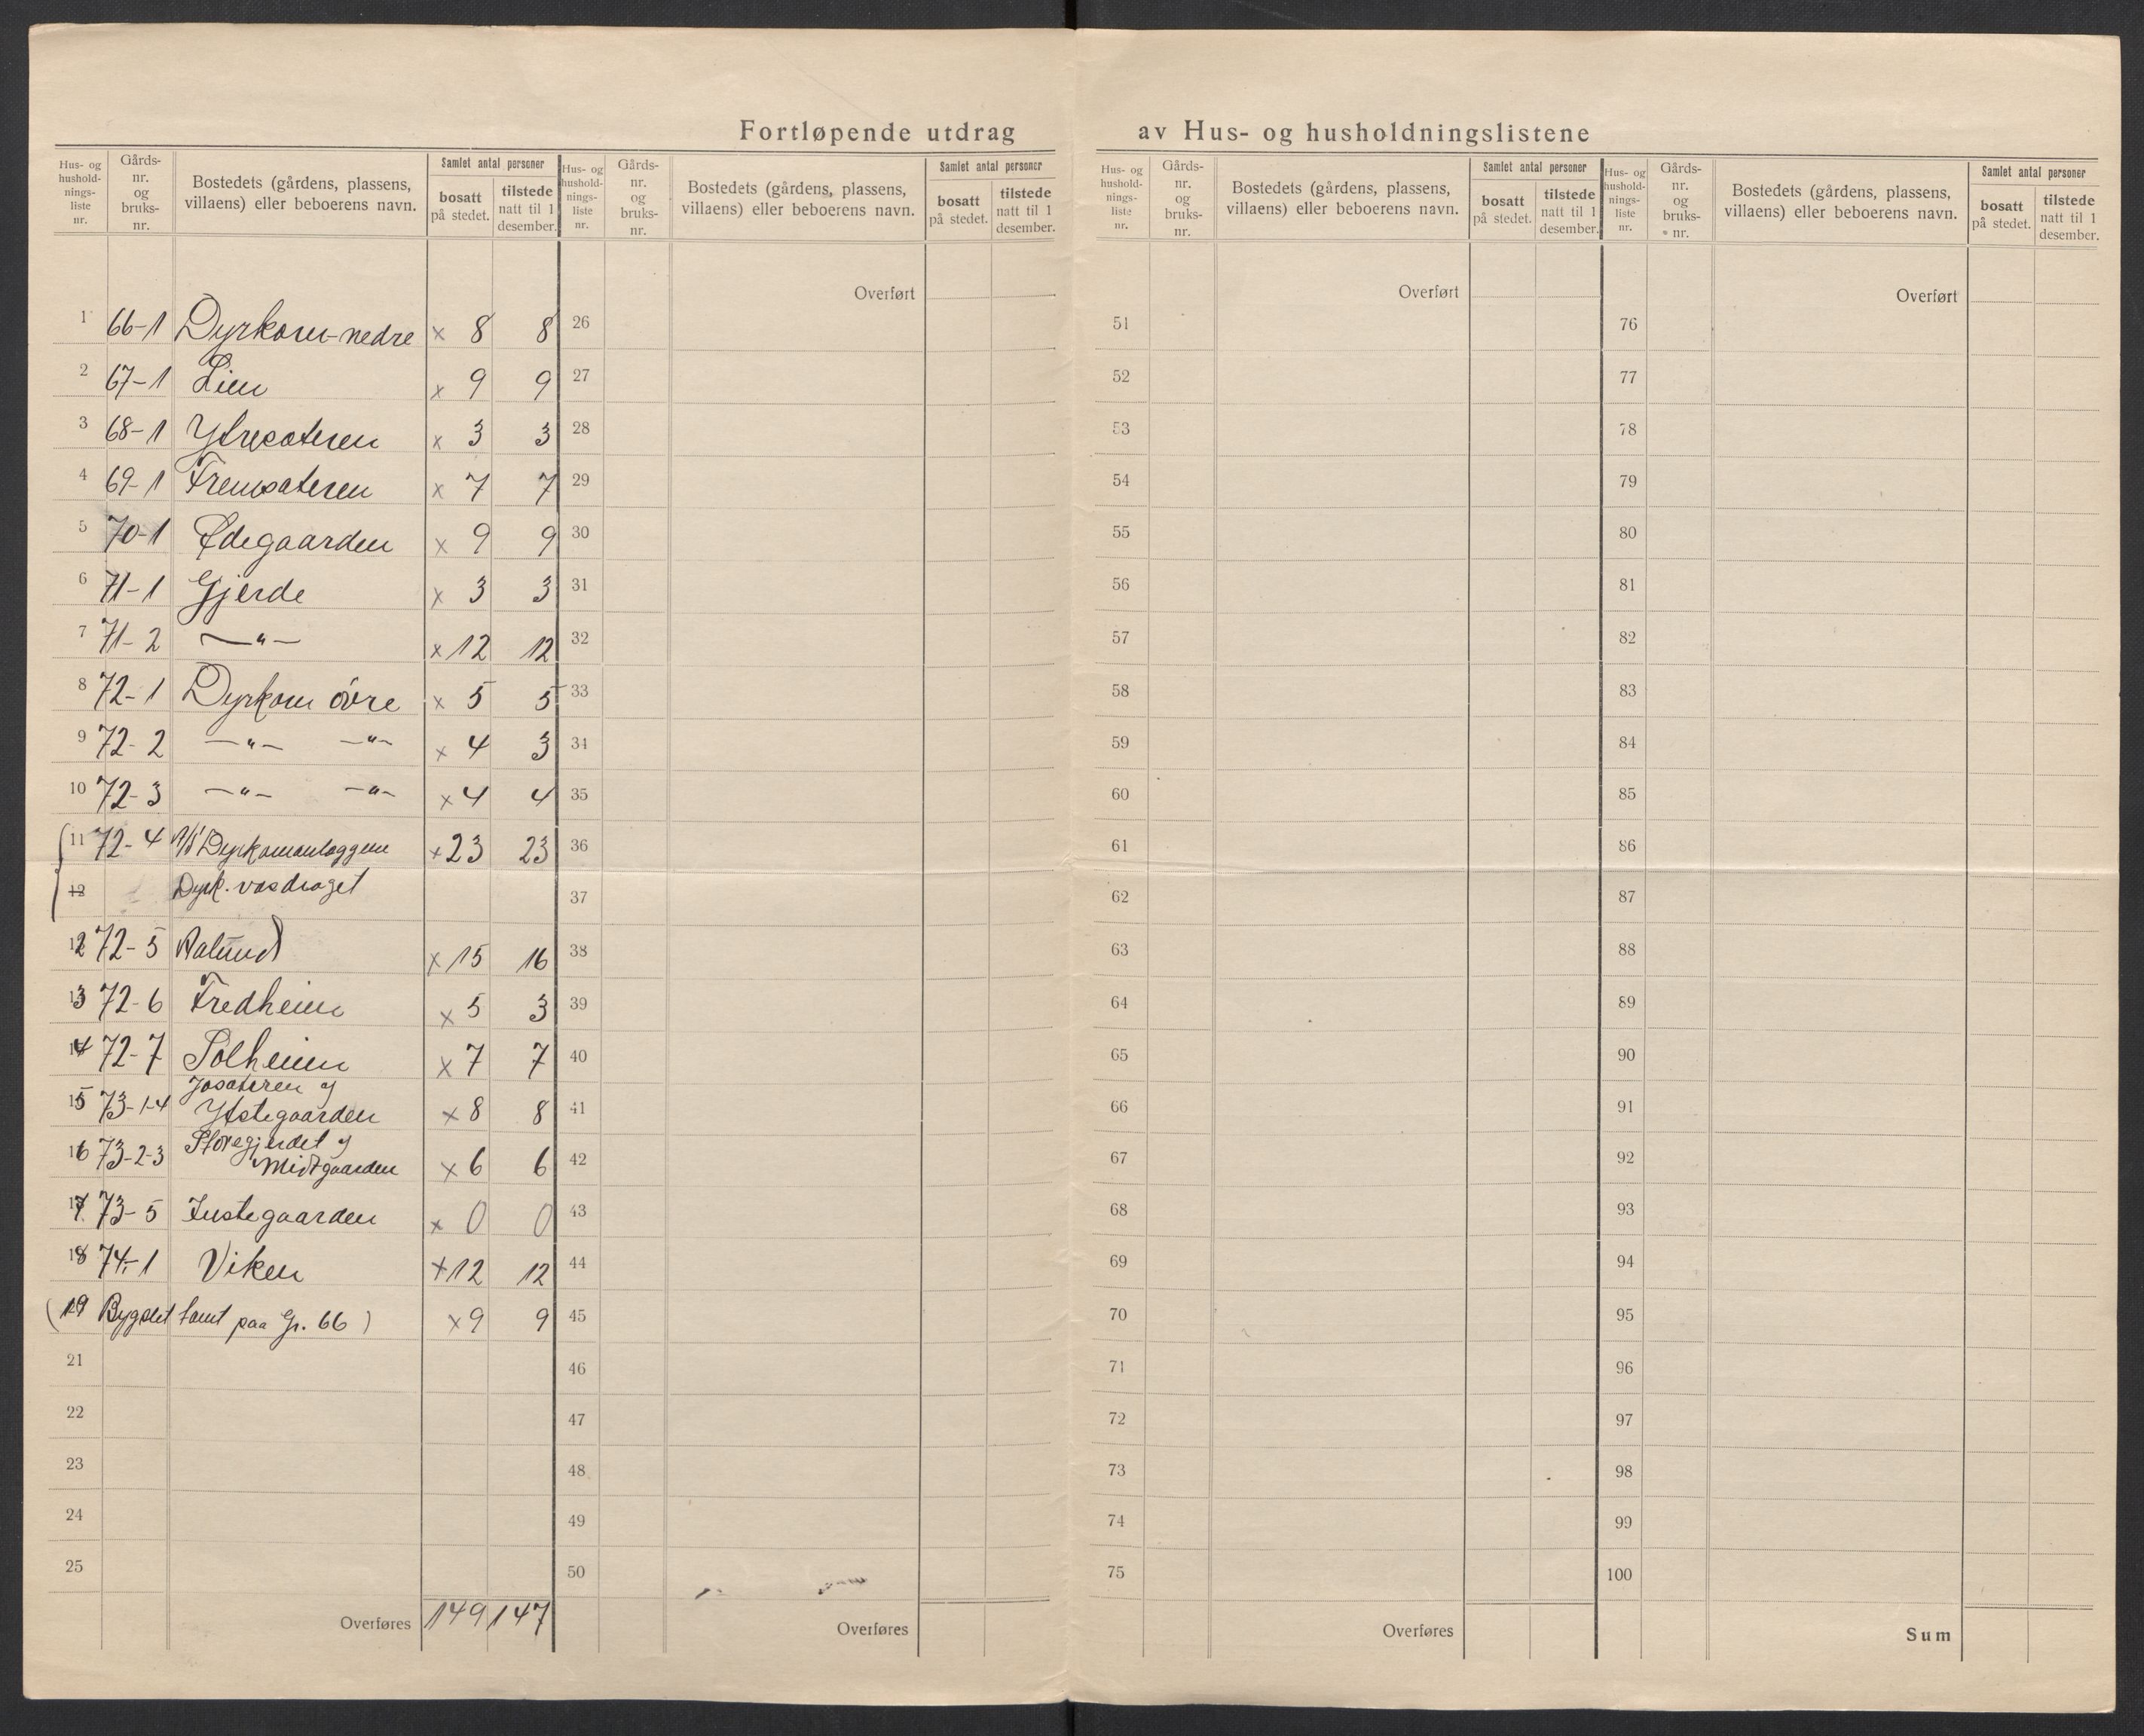 Fortløpende utdrag av Hus- og husholdningslistene
Hus- og husholdnings-liste nr. | Gårds-nr. og bruks-nr. | Bostedets (gårdens, plassens, villaens) eller beboerens navn. | Samlet antal personer bosatt på stedet. | tilstede natt til 1 desember.
1 66-1 Dyrkorn-nedre x 8 8
2 67-1 Lien x 9 9
3 68-1 Ytresæteren x 3 3
4 69-1 Fremsæteren x 7 7
5 70-1 Ødegaarden x 9 9
6 71-1 Gjerde x 3 3
7 71-2 —"— x 12 12
8 72-1 Dyrkorn øvre x 5 5
9 72-2 —"— —"— x 4 3
10 72-3 —"— —"— x 4 4
11 72-4 A/S Dyrkornanlæggene x 23 23
12 Dyrk. vasdraget
12 72-5 Aalund x 15 16
13 72-6 Fredheim x 5 3
14 72-7 Solheim x 7 7
15 73-1-4 Josæteren og
Ytstegaarden x 8 8
16 73-2-3 Storegjerdet og
Midtgaarden x 6 6
17 73-5 Instegaarden x 0 0
18 74-1 Viken x 12 12
(19 Bygslet tomt paa Gr. 66) x 9 9
21
22
23
24
25
Overføres 149 147
Hus- og husholdnings-liste nr. | Gårds-nr. og bruks-nr. | Bostedets (gårdens, plassens, villaens) eller beboerens navn. | Samlet antal personer bosatt på stedet. | tilstede natt til 1 desember.
Overført
26
27
28
29
30
31
32
33
34
35
36
37
38
39
40
41
42
43
44
45
46
47
48
49
50
Overføres
Hus- og husholdnings-liste nr. | Gårds-nr. og bruks-nr. | Bostedets (gårdens, plassens, villaens) eller beboerens navn. | Samlet antal personer bosatt på stedet. | tilstede natt til 1 desember.
Overført
51
52
53
54
55
56
57
58
59
60
61
62
63
64
65
66
67
68
69
70
71
72
73
74
75
Overføres
Hus- og husholdnings-liste nr. | Gårds-nr. og bruks-nr. | Bostedets (gårdens, plassens, villaens) eller beboerens navn. | Samlet antal personer bosatt på stedet. | tilstede natt til 1 desember.
Overført
76
77
78
79
80
81
82
83
84
85
86
87
88
89
90
91
92
93
94
95
96
97
98
99
100
Sum